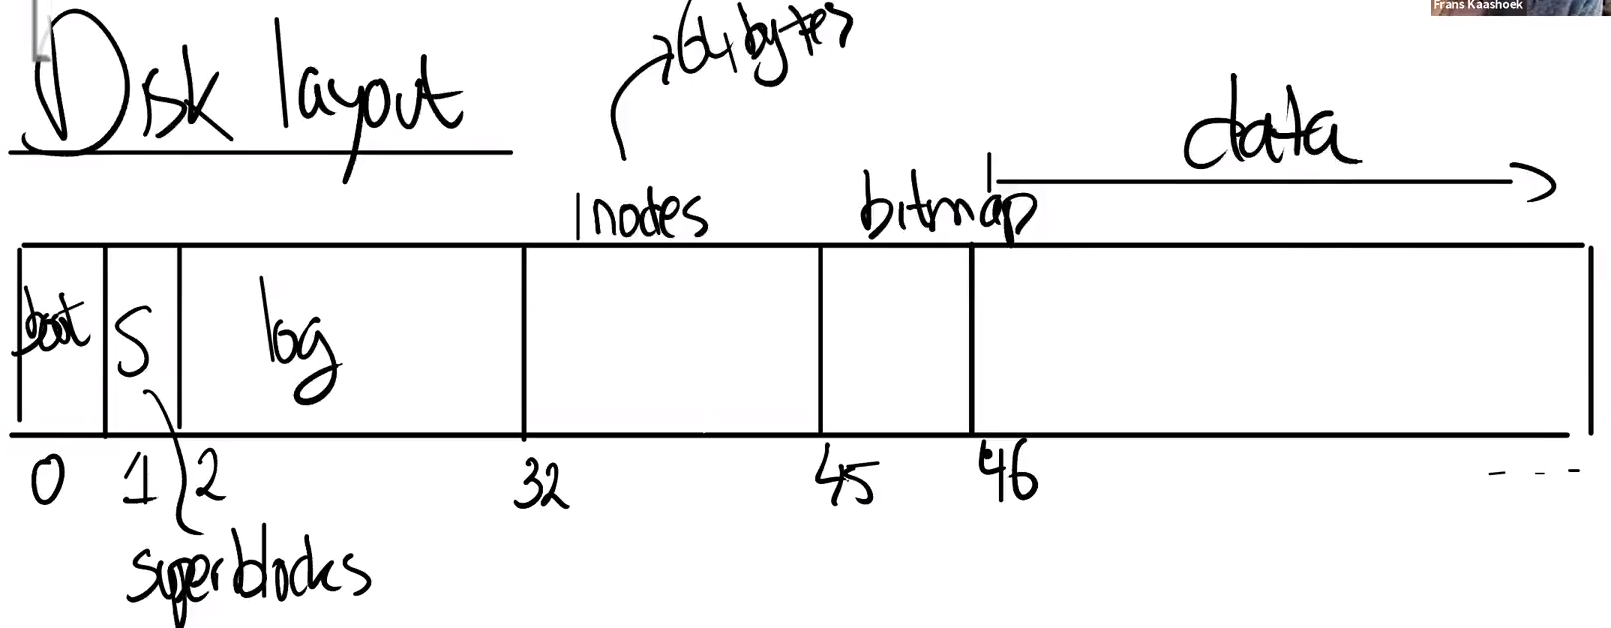 Frans Kaashoek
Disk layout
64 bytes
data
Inodes
bitmap
boot
S
log
0
1
2
32
45
46
- - -
superblocks